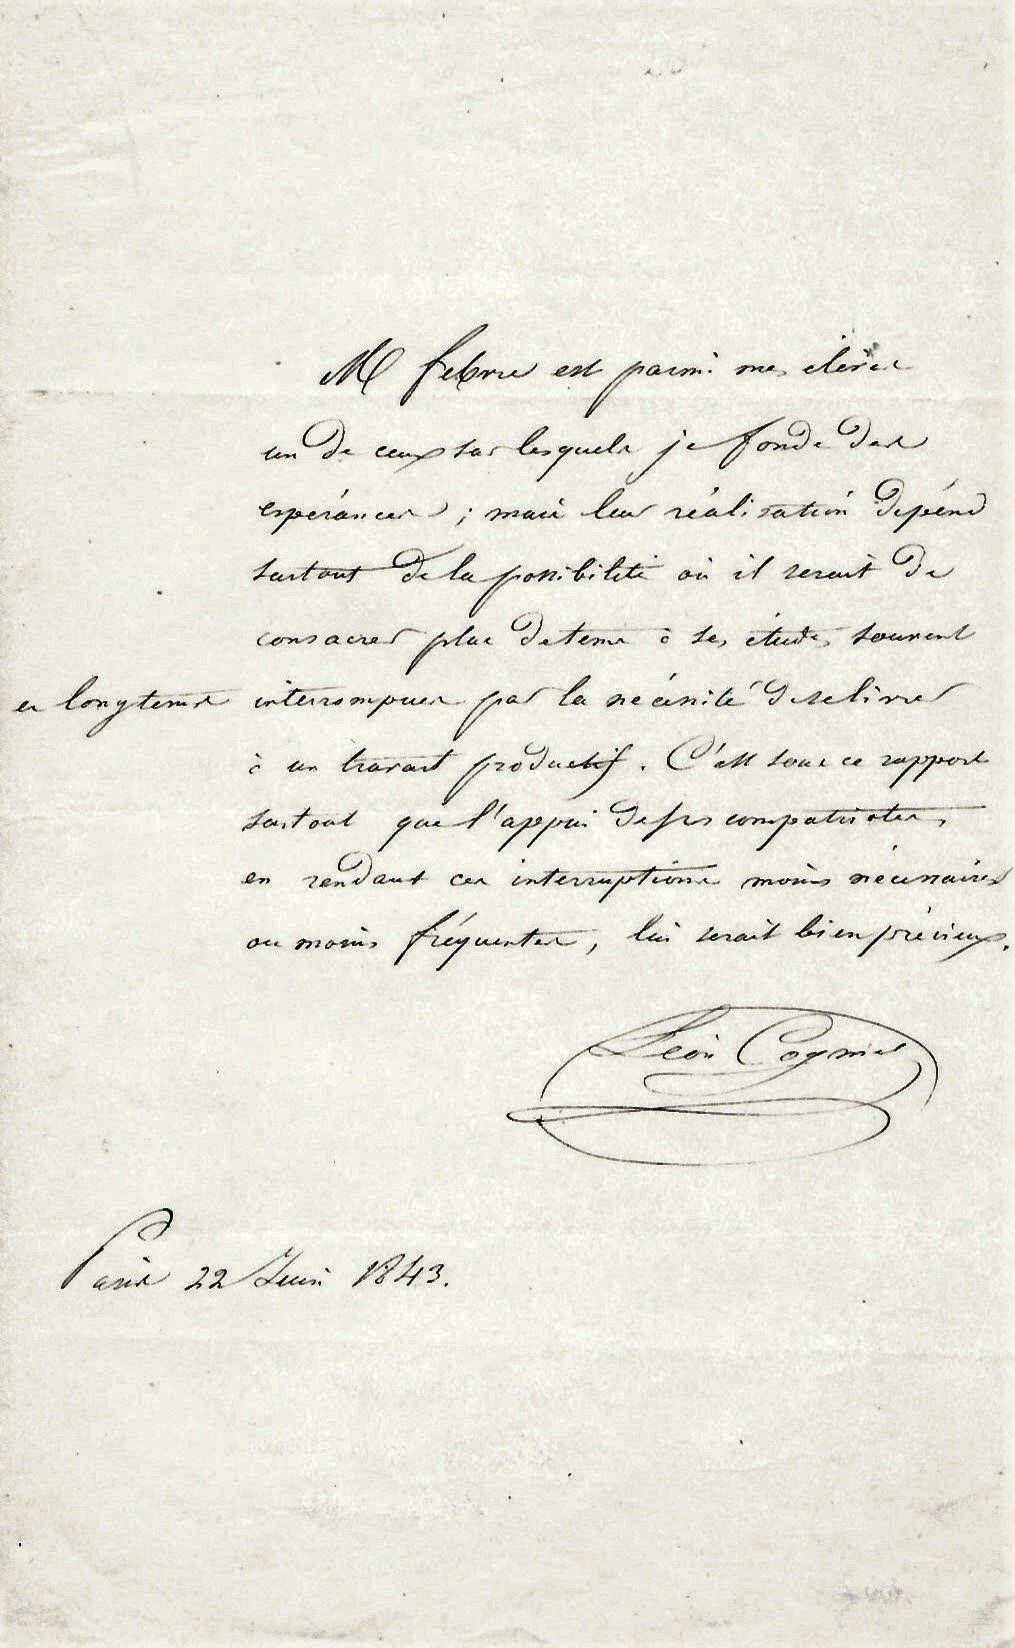 M febvre est parmi mes élèves
un de ceux sur lesquels je fonde des
espérances ; mais leur réalisation dépend
surtout de la possibilité où il serait de
consacrer plus de tems à ses études souvent
et longtems interrompues par la nécessité de se livrer
à un travail productif. C'est sous ce rapport
surtout que l'appui de ses compatriotes,
en rendant ces interruptions moins nécessaires
ou moins fréquentes, lui serait bien précieux.
Léon Cogniet
Paris 22 Juin 1843.